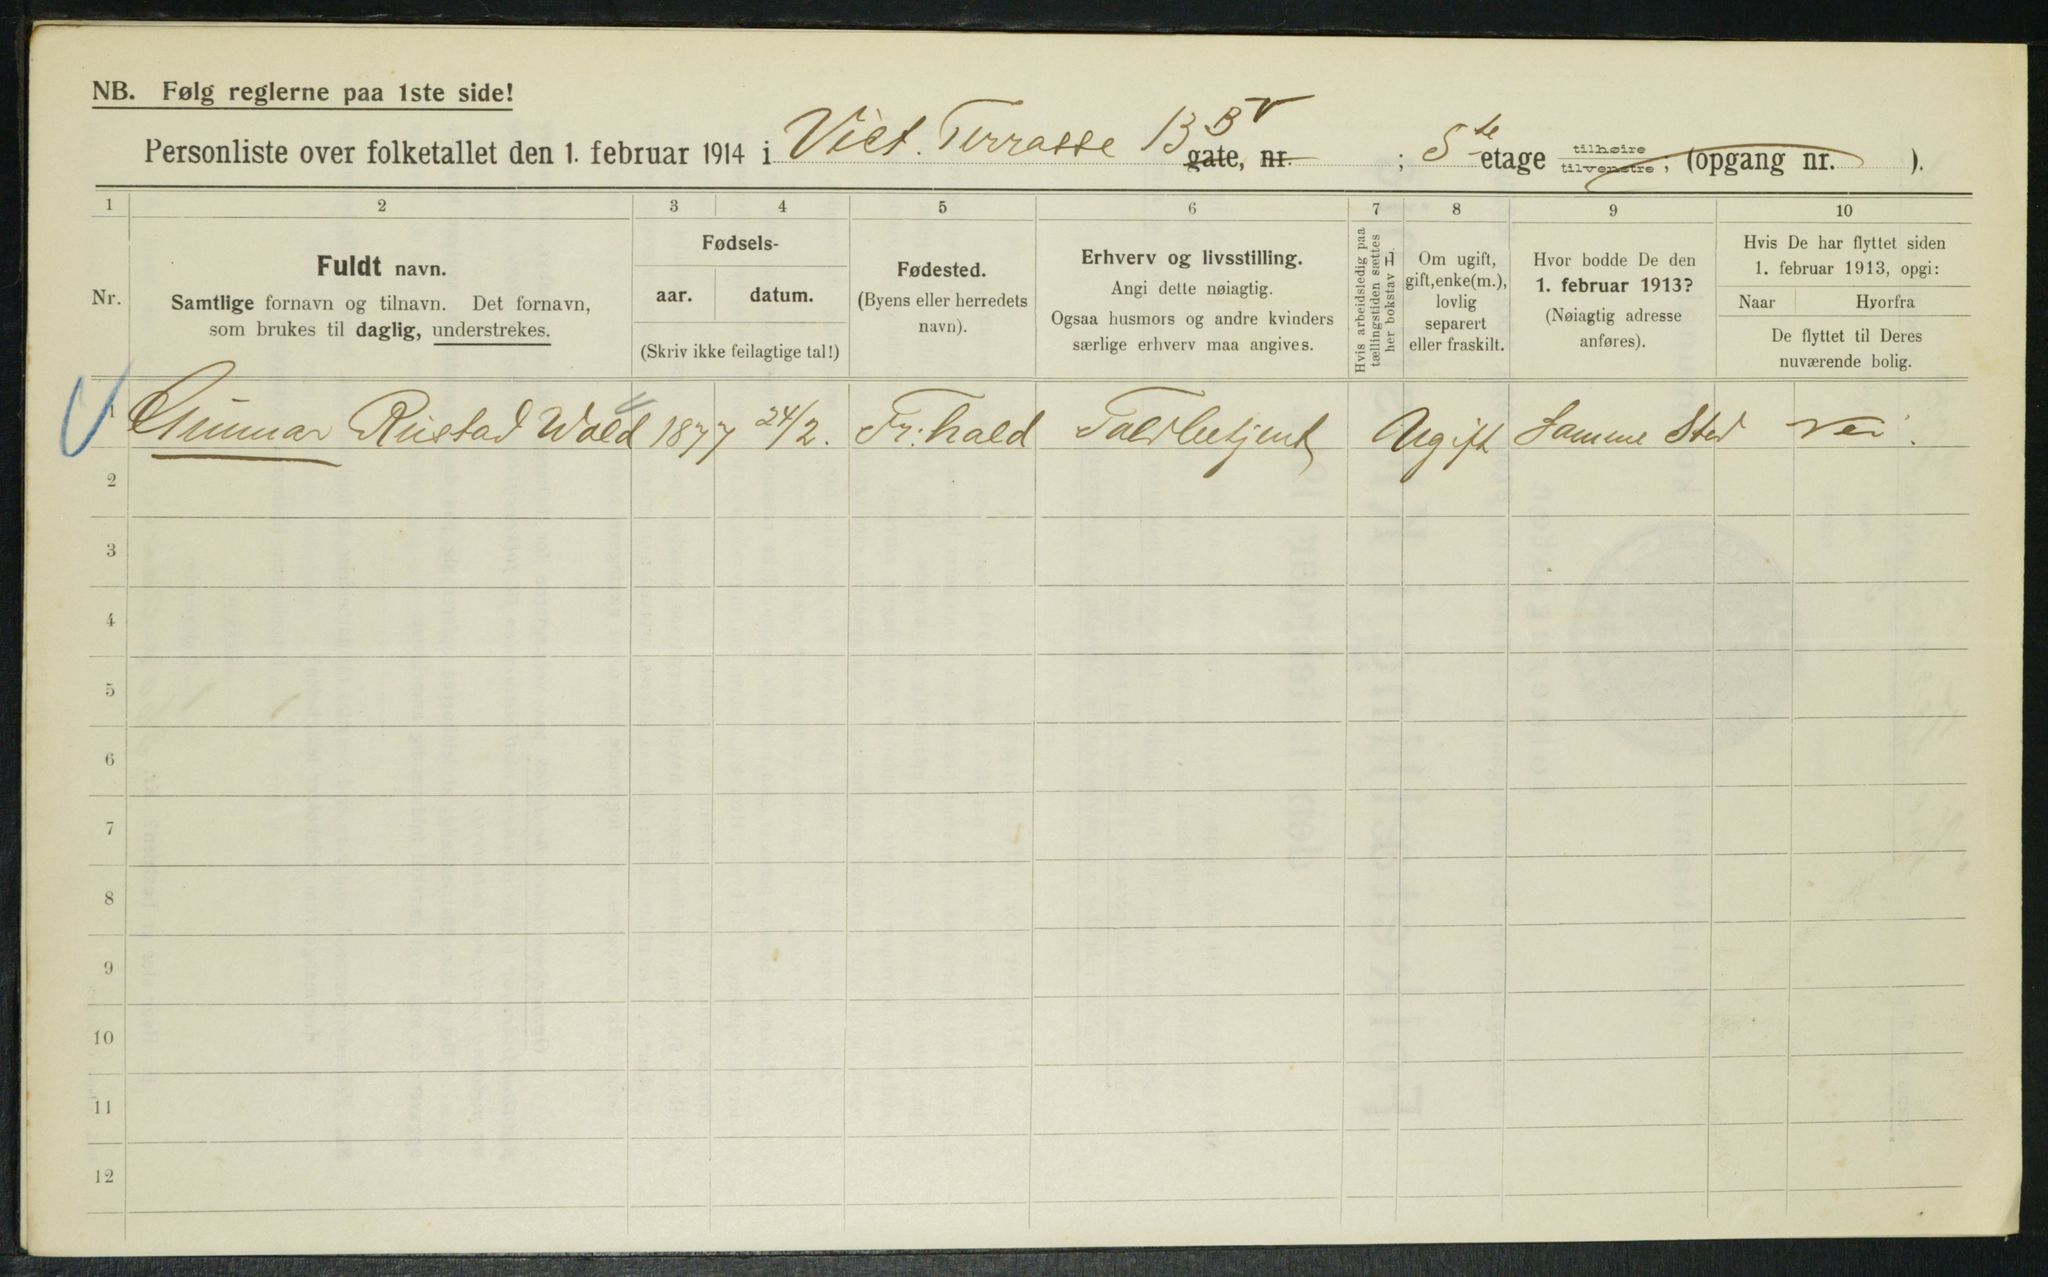 NB. Følg reglerne paa 1ste side!
Personliste over folketallet den 1. februar 1914 i Vict. Terrasse 13 B v gate, nr. ; 5 te etage tilhøire tilvenstre; (opgang nr. ).
1 2 3 4 5 6 7 8 9 10
Nr.
Fuldt navn.
Samtlige fornavn og tilnavn. Det fornavn,
som brukes til daglig, understrekes.
Fødsels-
aar. datum.
(Skriv ikke feilagtige tal!)
Fødested.
(Byens eller herredets
navn).
Erhverv og livsstilling.
Angi dette nøiagtig.
Ogsaa husmors og andre kvinders
særlige erhverv maa angives.
Hvis arbeidsledig paa
tællingstiden sættes
her bokstav L.
Om ugift,
gift, enke(m.),
lovlig
separert
eller fraskilt.
Hvor bodde De den
1. februar 1913?
(Nøiagtig adresse
anføres).
Hvis De har flyttet siden
1. februar 1913, opgi:
Naar Hvorfra
De flyttet til Deres
nuværende bolig.
1 Gunnar Rustad Wold 1877 24/2. Fr:hald Toldbetjent Ugift Samme Sted Nei.
2
3
4
5
6
7
8
9
10
11
12